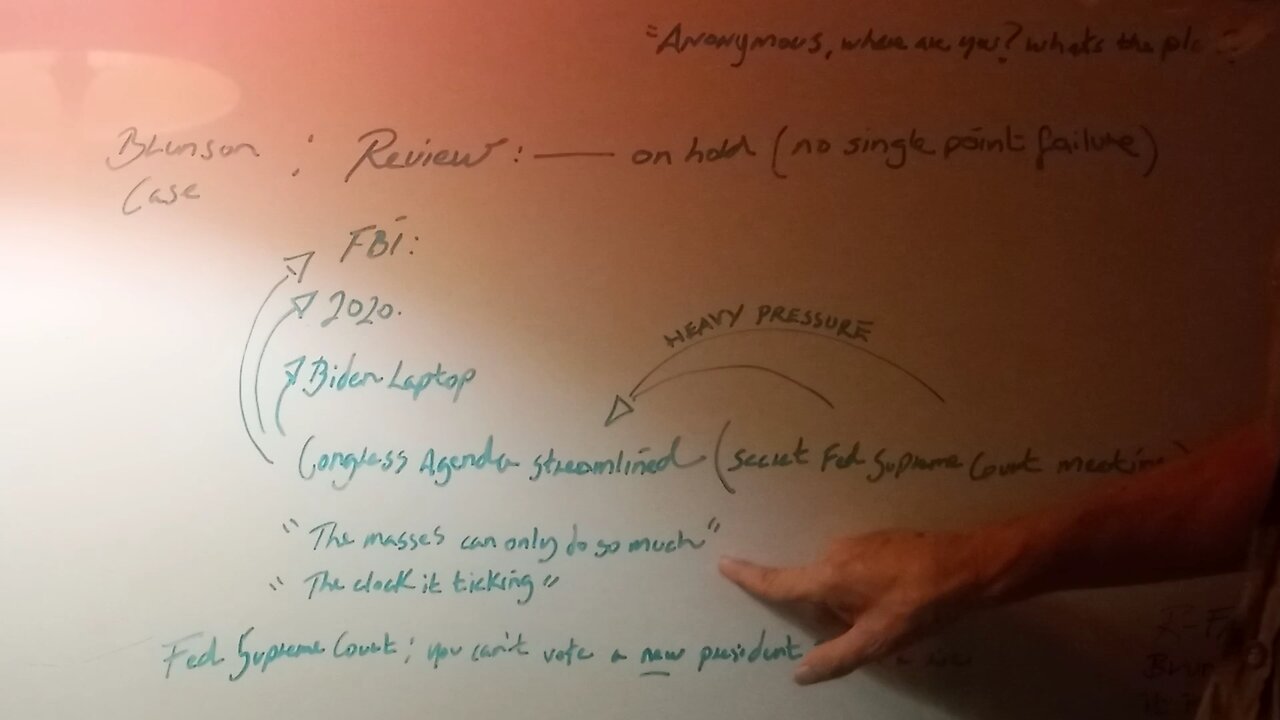 "Anonymous, where are you? whats the
Brunson : Review: — on hold (no single point failure)
Case
FBI:
2020.
HEAVY PRESSURE
Biden Laptop
Congress Agenda streamlined (secret Fed Supreme Court meeting)
"The masses can only do so much"
"The clock it ticking"
Fed Supreme Court; you can't vote a new president